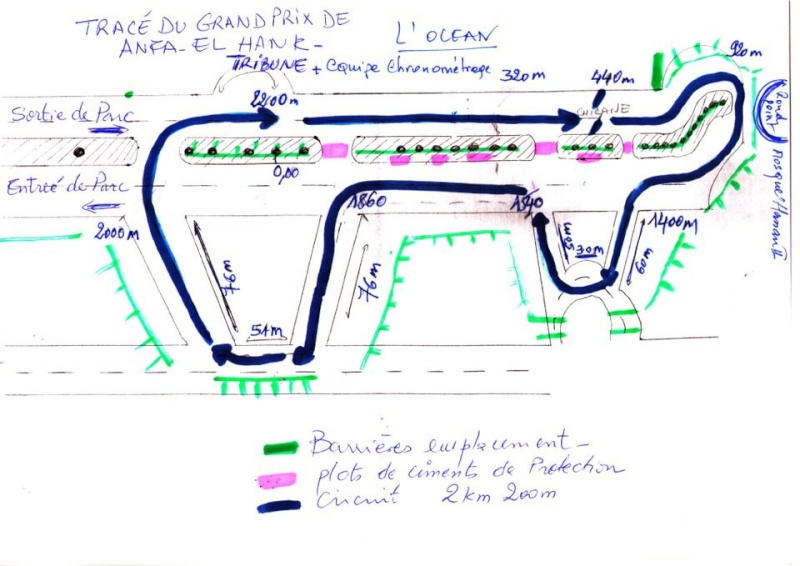 TRACÉ DU GRAND PRIX DE
ANFA-EL HANK-
L'OCEAN
TRIBUNE + Equipe Chronométrage
320m
440m
920m
CHICANE
2200m
Sortie de Parc
Rond point
Mosquée Hassan II
0,00
Entrée de Parc
1860
1400m
2000m
50m
30m
60m
76m
76m
51m
Barrières emplacement-
plots de ciments de Protection
Circuit 2km 200m